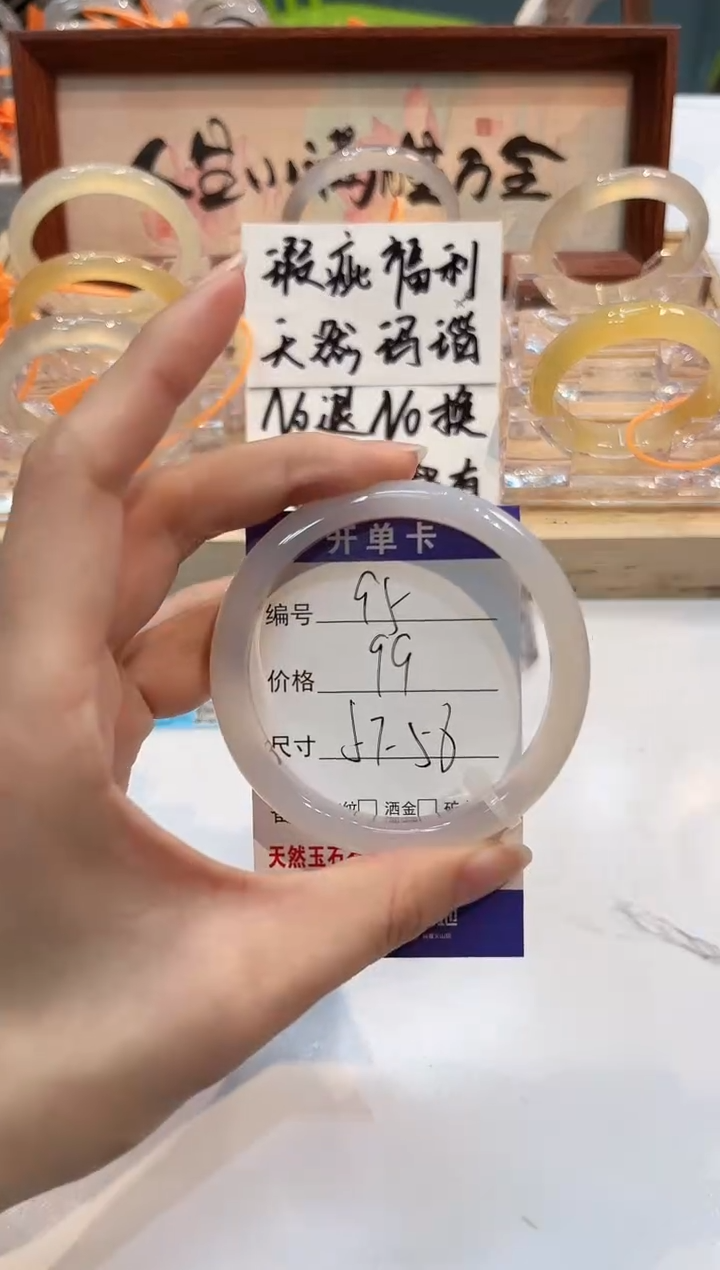 人生小满胜万全
瑕疵福利
天然玛瑙
No退No换
开单卡
编号 95
价格 99
尺寸 57-58
纹 洒金
天然玉石